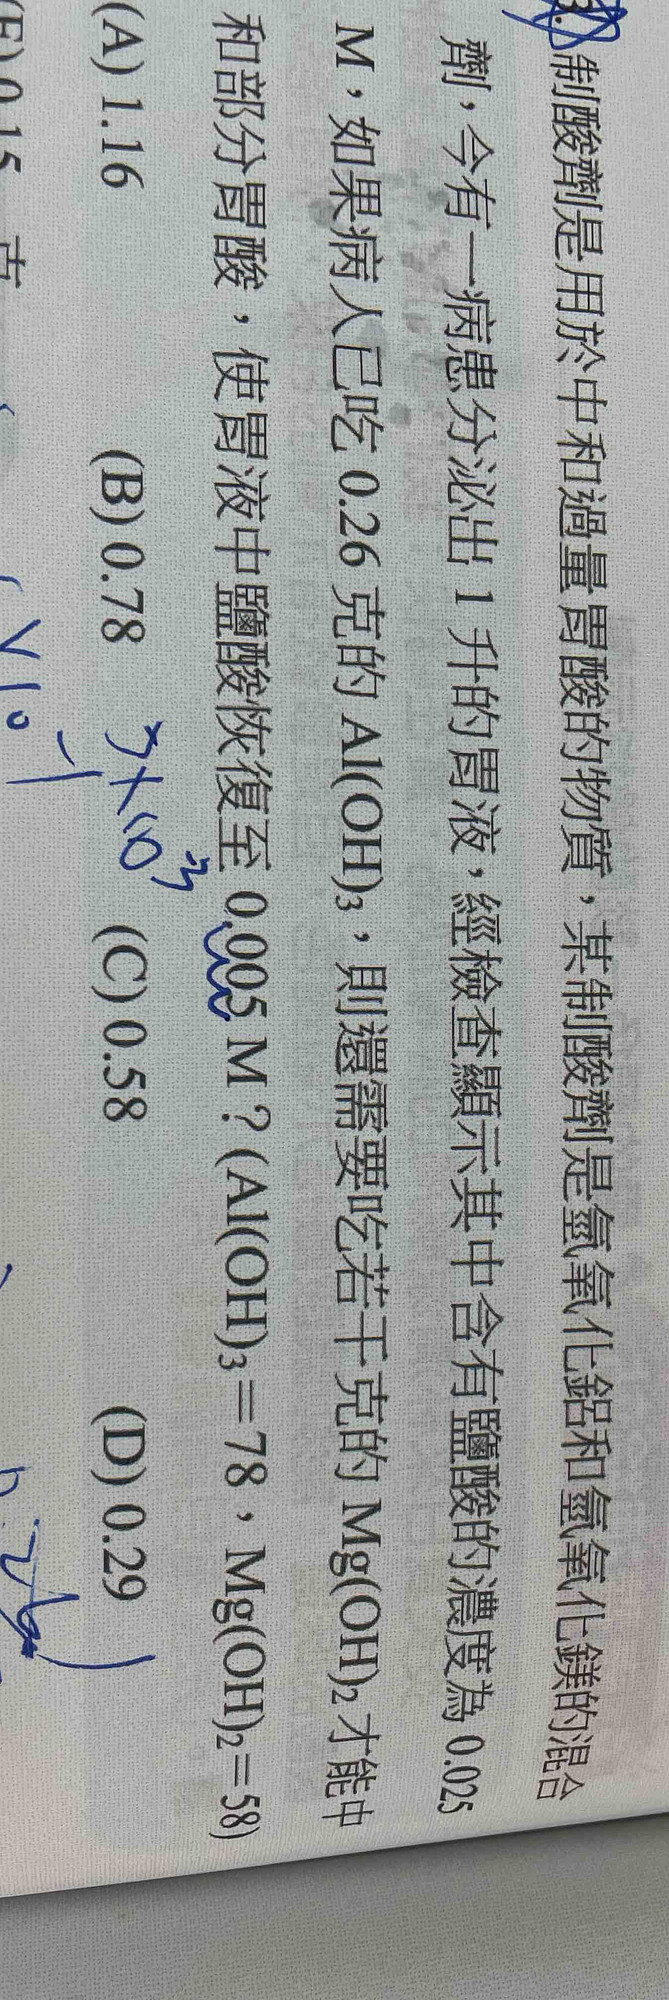 3.制酸劑是用於中和過量胃酸的物質，某制酸劑是氫氧化鋁和氫氧化鎂的混合
劑，今有一病患分泌出 1 升的胃液，經檢查顯示其中含有鹽酸的濃度為 0.025
M，如果病人已吃 0.26 克的 Al(OH)₃，則還需要吃若干克的 Mg(OH)₂ 才能中
和部分胃酸，使胃液中鹽酸恢復至 0.005 M？(Al(OH)₃＝78，Mg(OH)₂＝58)
(A) 1.16 (B) 0.78 (C) 0.58 (D) 0.29
(E) 0.15 克